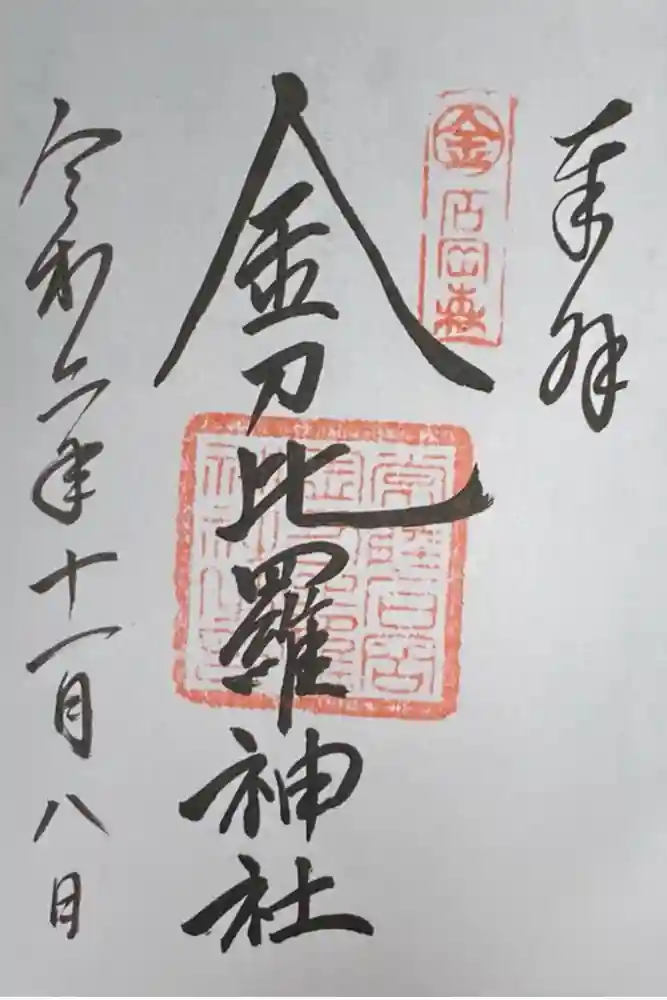 奉拝
金
石岡森
金刀比羅神社
令和二年十一月八日